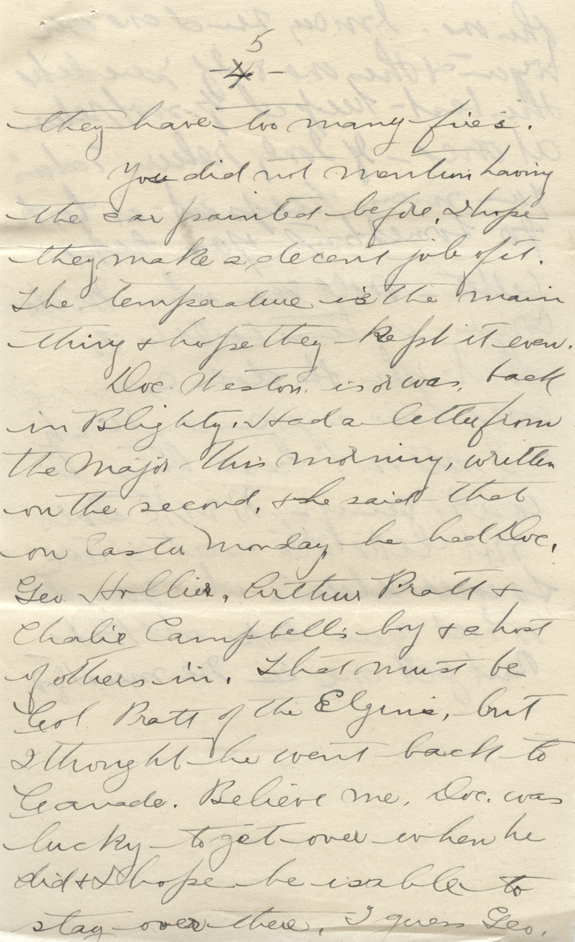 5
-4-
they have too many fires.
You did not mention having
the car painted before, I hope
they make a decent job of it.
The temperature is the main
thing & hope they kept it even.
Doc. Weston is or was, back
in Blighty. I had a letter from
the Major this morning, written
on the second, & he said that
on Easter Monday he had Doc,
Geo Hollier, Arthur Pratt &
Charlie Campbells boy & a host
of others in. That must be
Col. Pratt of the Elgins, but
I thought he went back to
Canada. Believe me, Doc. was
lucky to get over when he
did & I hope he is able to
stay over there. I guess Geo.